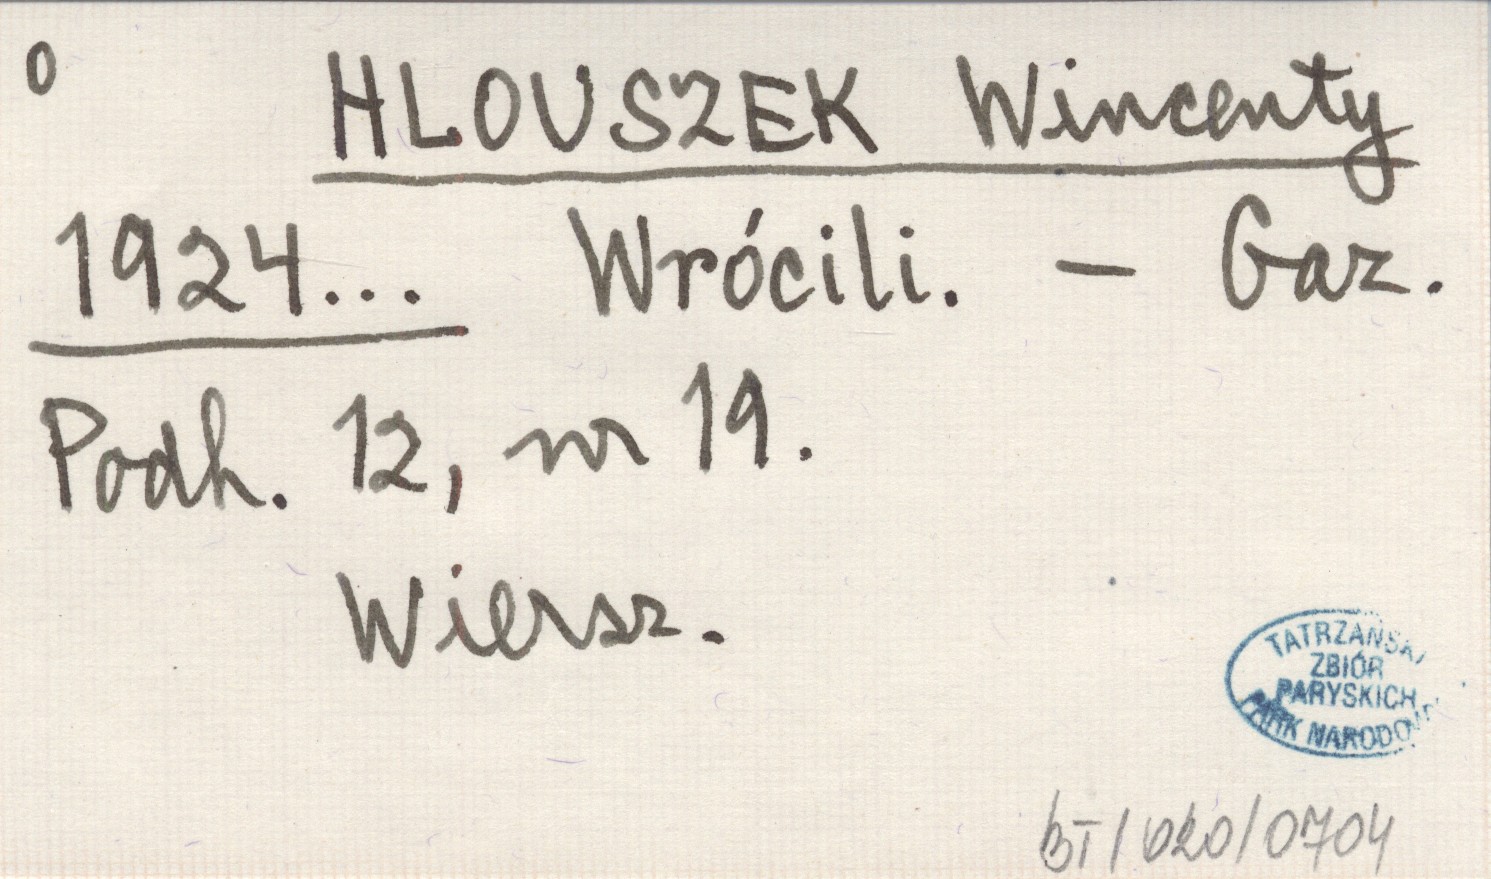 0
HLOUSZEK Wincenty
1924... Wrócili. – Gaz.
Podh. 12, nr 19.
Wiersz.
TATRZAŃSKI
ZBIÓR
PARYSKICH
PARK NARODOWY
BT/020/0704